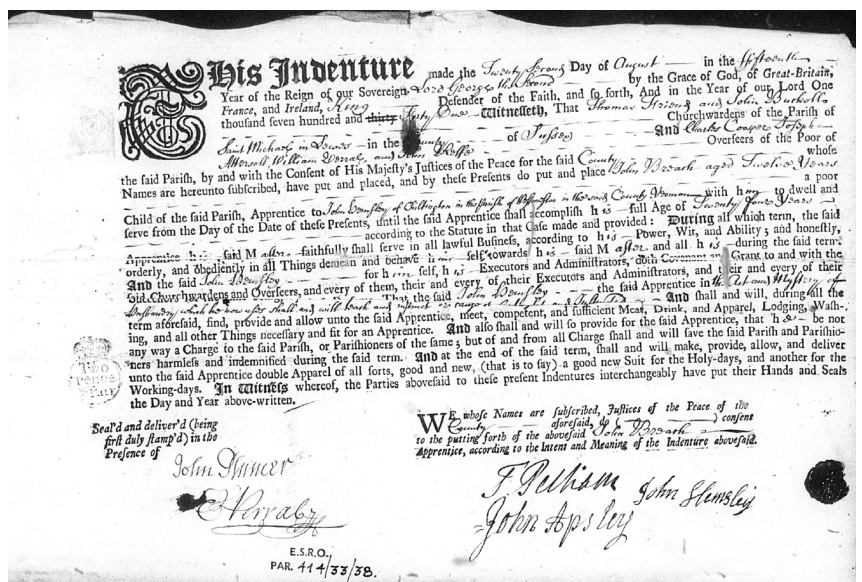 This Indenture made the Twenty Second Day of August in the fifteenth
Year of the Reign of our Sovereign Lord George the Second by the Grace of God, of Great-Britain,
France, and Ireland, King Defender of the Faith, and so forth, And in the Year of our Lord One
thousand seven hundred and thirty Forty One Witnesseth, That Thomas Friend and John
Churchwardens of the Parish of
Saint Michael in Lewes in the County of Sussex And Charles Cooper Joseph
Attersoll William Verral and John Overseers of the Poor of
the said Parish, by and with the Consent of His Majesty's Justices of the Peace for the said County whose
Names are hereunto subscribed, have put and placed, and by these Presents do put and place John Breath aged Twelve Years
a poor
Child of the said Parish, Apprentice to John Hemsley of Chiltington in the Parish of in the said County Yeoman with him to dwell and
serve from the Day of the Date of these Presents, until the said Apprentice shall accomplish his full Age of Twenty four Years
according to the Statute in that Case made and provided: During all which term, the said
Apprentice his said Master faithfully shall serve in all lawful Business, according to his Power, Wit, and Ability; and honestly,
orderly, and obediently in all Things demean and behave him self towards his said Master and all his during the said term.
And the said John Hemsley for him self, his Executors and Administrators, doth Covenant and Grant to and with the
said Churchwardens and Overseers, and every of them, their and every of their Executors and Administrators, and their and every of their
That the said John Hemsley the said Apprentice in the Art and Mystery of
Husbandry which he now uses shall and will teach and instruct And shall and will, during all the
term aforesaid, find, provide and allow unto the said Apprentice, meet, competent, and sufficient Meat, Drink, and Apparel, Lodging, Wash-
ing, and all other Things necessary and fit for an Apprentice. And also shall and will so provide for the said Apprentice, that he be not
any way a Charge to the said Parish, or Parishioners of the same; but of and from all Charge shall and will save the said Parish and Parishio-
ners harmless and indemnified during the said term. And at the end of the said term, shall and will make, provide, allow, and deliver
unto the said Apprentice double Apparel of all sorts, good and new, (that is to say) a good new Suit for the Holy-days, and another for the
Working-days. In Witness whereof, the Parties abovesaid to these present Indentures interchangeably have put their Hands and Seals
the Day and Year above-written.
Seal'd and deliver'd (being
first duly stamp'd) in the
Presence of
WE whose Names are subscribed, Justices of the Peace of the
County aforesaid, consent
to the putting forth of the abovesaid John Breath
Apprentice, according to the Intent and Meaning of the Indenture abovesaid.
F Pelham
John Hemsley
John Apsley
E.S.R.O.
PAR. 414/33/38.